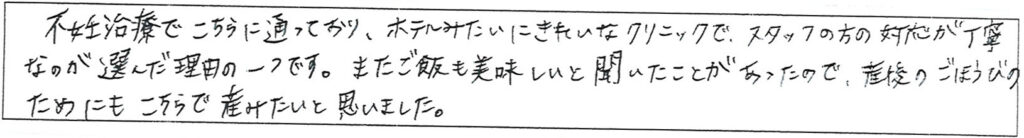 不妊治療でこちらに通っており、ホテルみたいにきれいなクリニックで、スタッフの方の対応が丁寧
なのが選んだ理由の一つです。またご飯も美味しいと聞いたことがあったので、産後のごほうびの
ためにもこちらで産みたいと思いました。